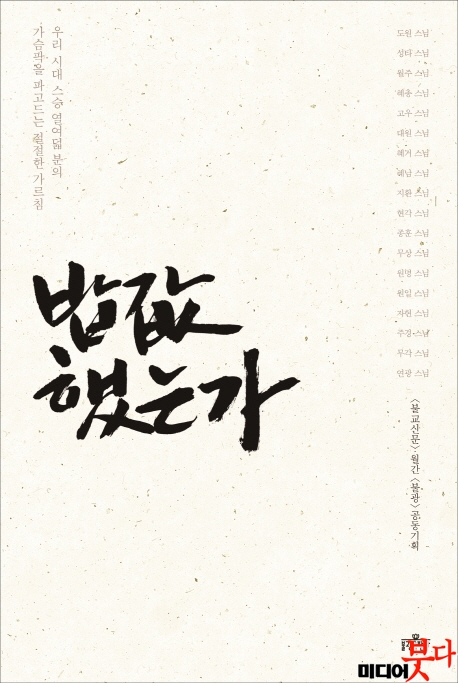 우리 시대 스승 열여덟 분의
가슴팍을 파고드는 절절한 가르침
도원 스님
성타 스님
월주 스님
혜총 스님
고우 스님
대원 스님
혜거 스님
혜남 스님
지환 스님
현각 스님
종훈 스님
무상 스님
원명 스님
원일 스님
자현 스님
주경 스님
무각 스님
연광 스님
밥값
했는가
<불교신문>·월간 <불광> 공동기획
미디어붓다